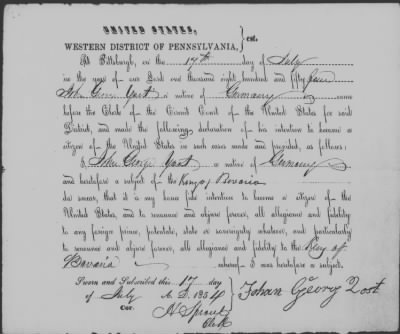 UNITED STATES,
WESTERN DISTRICT OF PENNSYLVANIA, } sct.
At Pittsburgh, on the 17th day of July
in the year of our Lord one thousand eight hundred and fifty four
John George Yost a native of Germany
before the Clerk of the Circuit Court of the United States for said
District, and made the following declaration of his intention to become a
citizen of the United States in such cases made and provided, as follows:
I, John George Yost a native of Germany
and heretofore a subject of the King of Bovaria
do swear, that it is my bona fide intention to become a citizen of the
United States, and to renounce and abjure forever, all allegiance and fidelity
to any foreign prince, potentate, state or sovereignty whatever, and particularly
to renounce and abjure forever, all allegiance and fidelity to the King of
Bovaria whereof I was heretofore a subject.
Sworn and Subscribed this 17 day
of July A. D. 1854 } Johan Georg Yost
Cor: H Sproul
Clerk